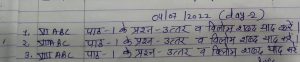 04/07/2022 (day-2)
1. VI ABC पाठ-1 के प्रश्न-उत्तर व विलोम शब्द याद करें।
2. VII ABC पाठ-1 के प्रश्न-उत्तर व विलोम शब्द याद करें।
3. VIII ABC पाठ-1 के प्रश्न-उत्तर व विलोम शब्द याद करें।